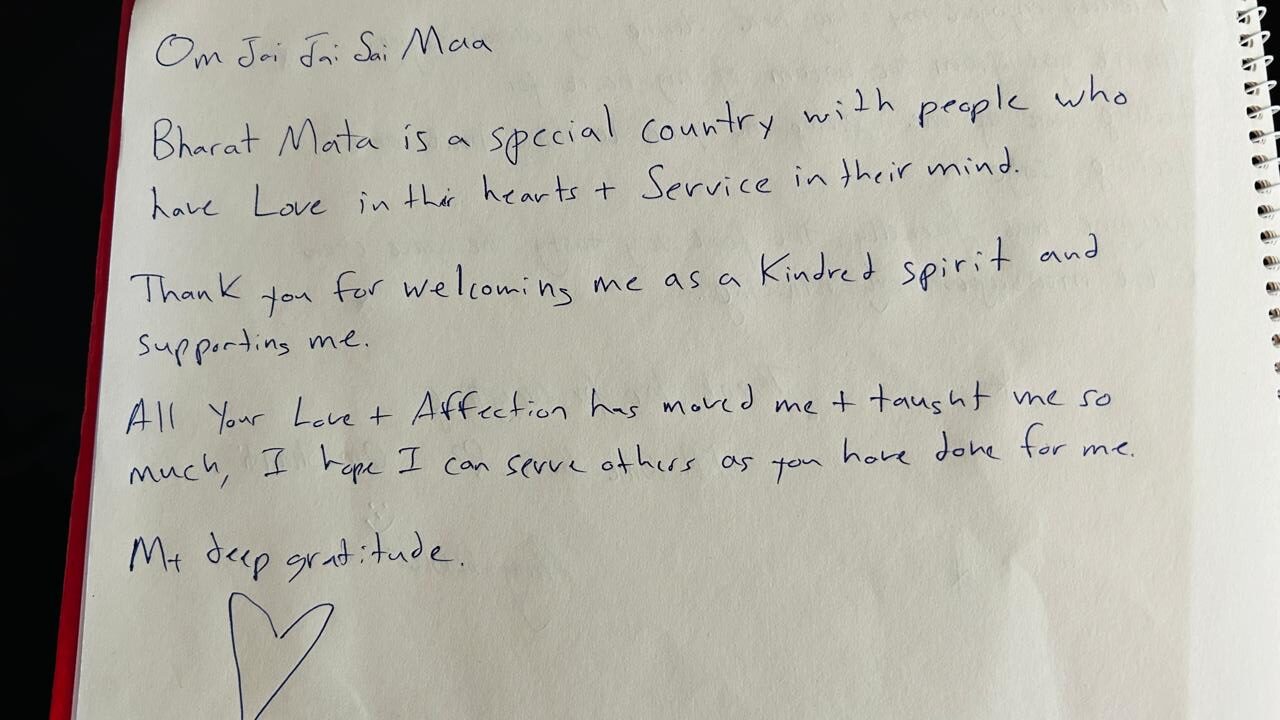 Om Jai Jai Sai Maa
Bharat Mata is a special country with people who
have Love in their hearts + Service in their mind.
Thank you for welcoming me as a Kindred spirit and
supporting me.
All Your Love + Affection has moved me + taught me so
much, I hope I can serve others as you have done for me.
My deep gratitude.